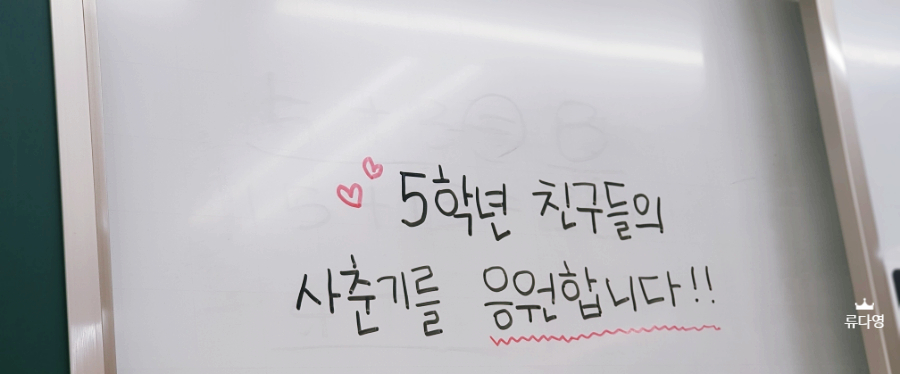 5학년 친구들의
사춘기를 응원합니다!!
류다영